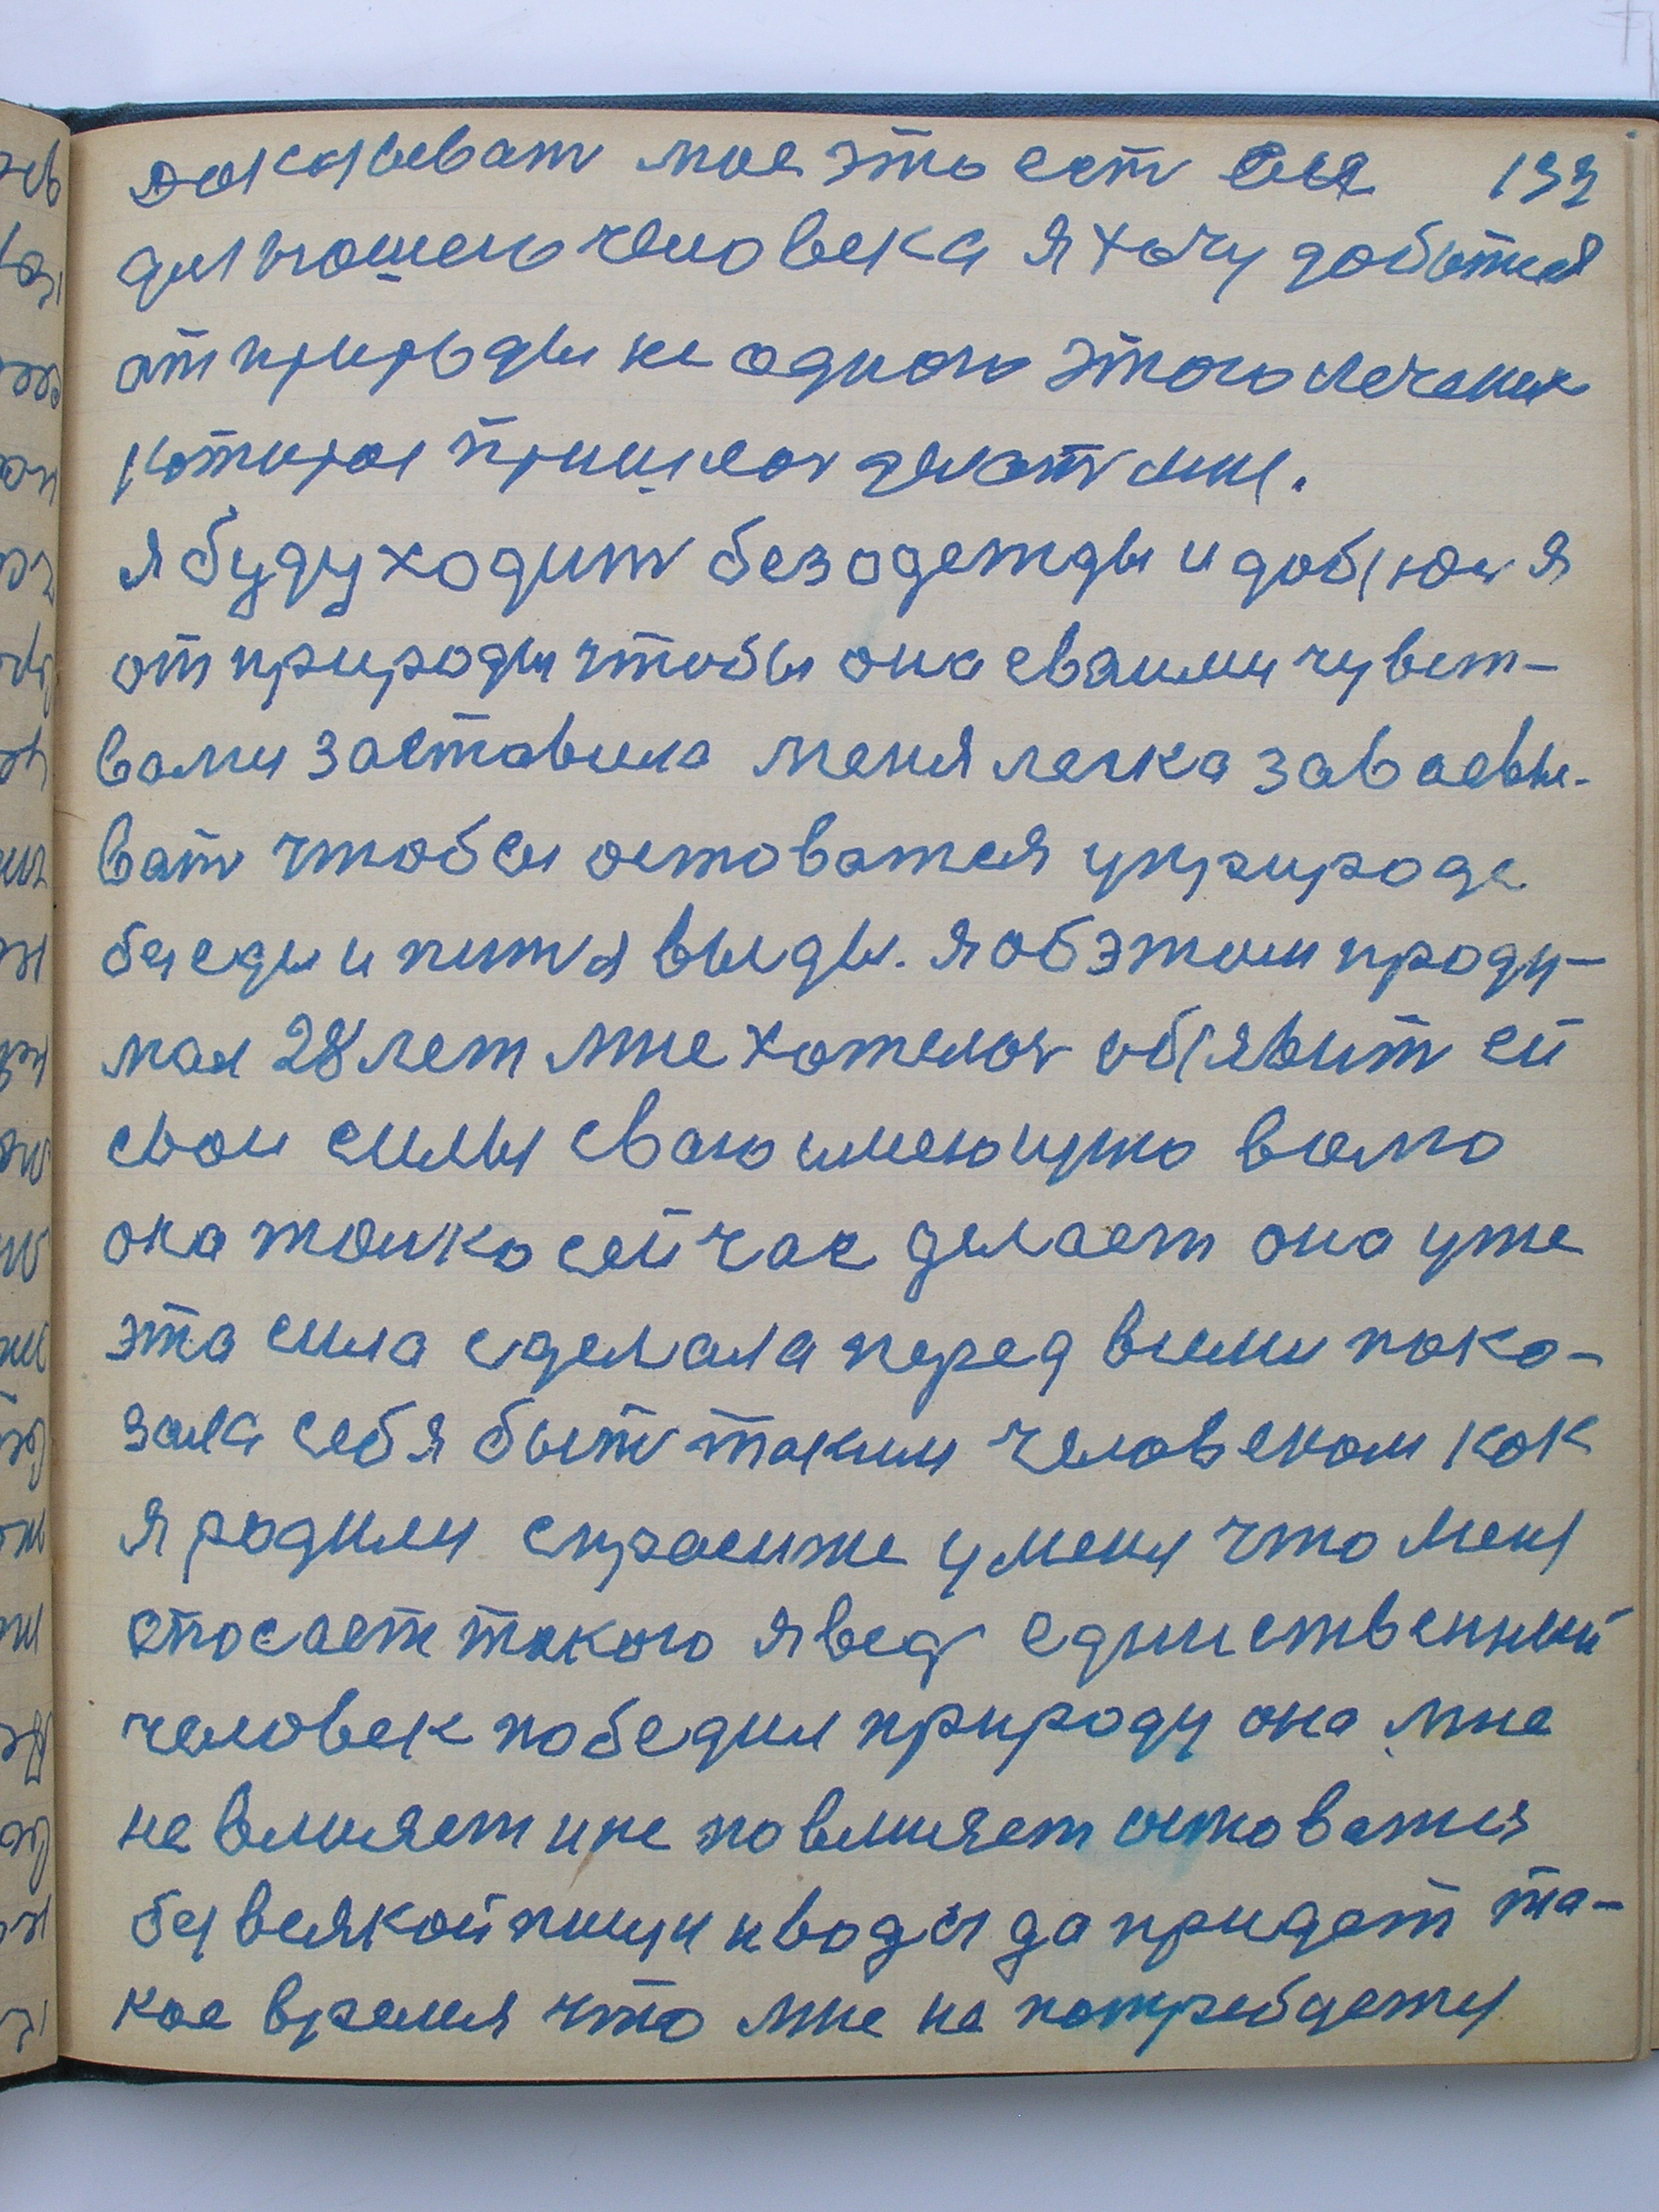 доказыват мое это ест все 133
для ношего человека я хочу добится
от природы не одного этого лечения
которое пришлос делат мне.
я буду ходит без одежды и добюся
от природы чтобы она сваими чувст-
вами заставила меня легка заваевы-
ват чтобы остоватся уприроде
без еды и питя выды. я об этом проду-
мал 28 лет мне хотелос обявит ей
свои силы сваю имеющую волю
она толко сейчас делает она уже
эта сила сделала перед всеми пока-
зала себя быт таким человеком как
я родили спросите у меня что меня
спосает такого я вед единственный
человек победил природу она мне
не влияет и не повлияет остоватся
без всякой пищи и воды да придет та-
кое время что мне не потребуется